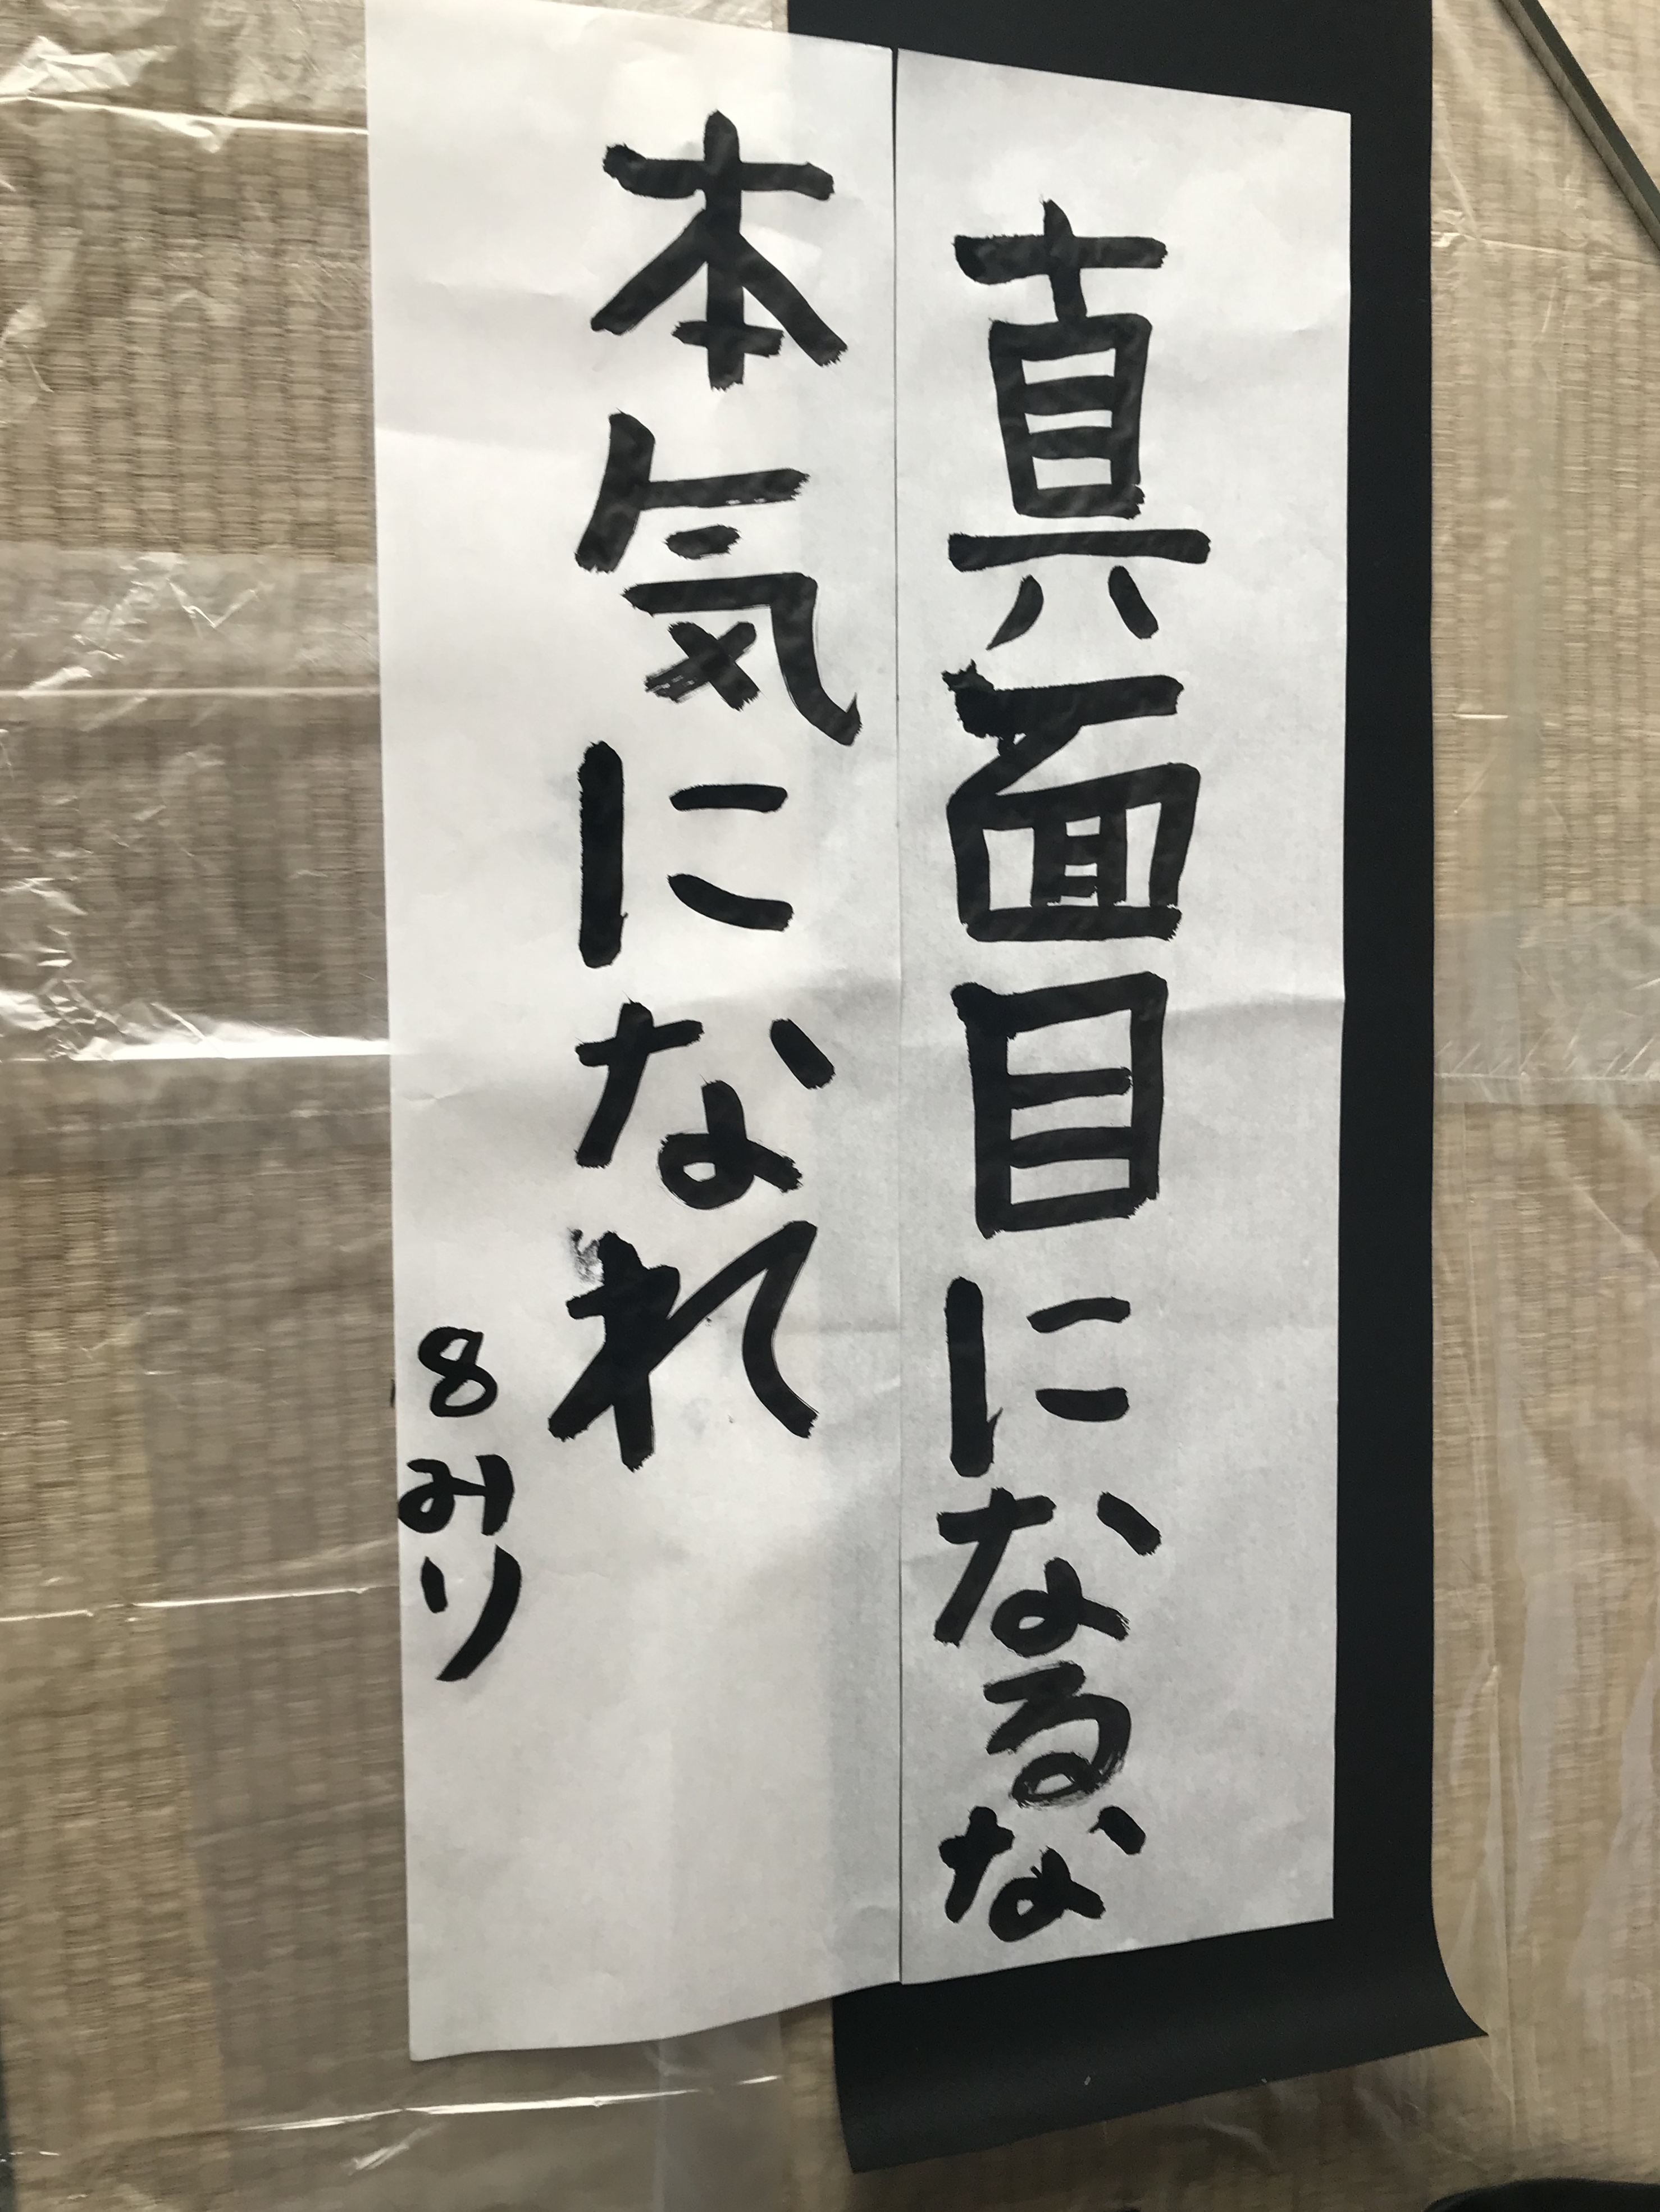 真面目になるな
本気になれ
8みり